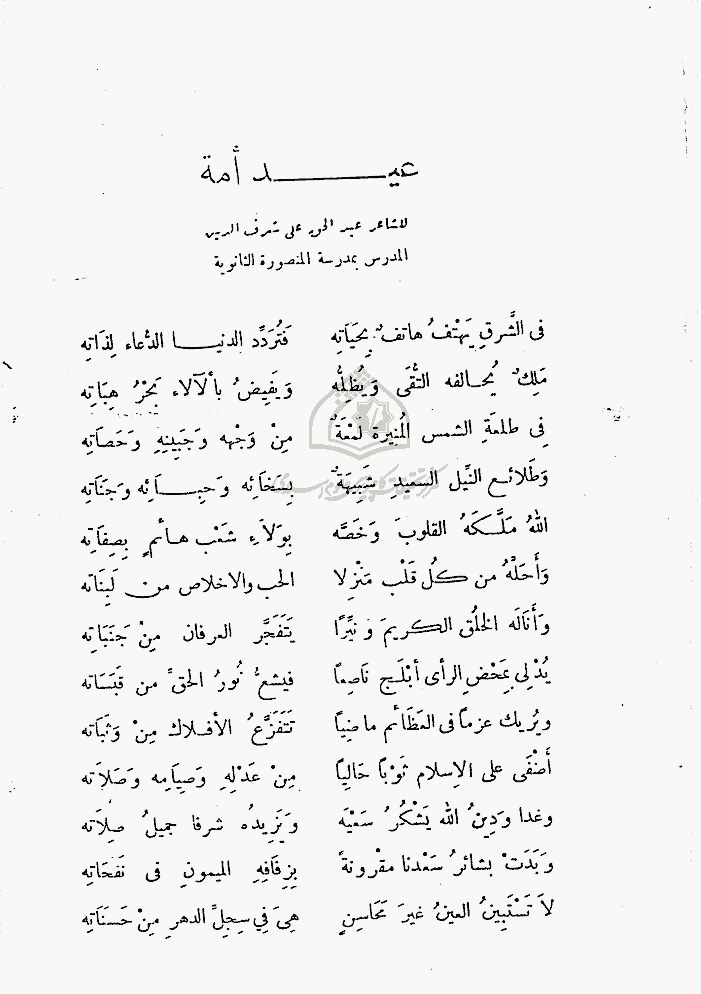 عيد أمة
للشاعر عبد الحميد على شرف الدين
المدرس بمدرسة المنصورة الثانوية
فى الشَّرقِ يَهْتفُ هاتفٌ بِحَيَاتِه فَتُرَدِّد الدنيا الدُّعاء لِذَاتِه
مَلِكٌ يُحالفه التُّقَى وَيُظِلُّه وَيَفِيضُ بالآلاء بَحْرُ هِبَاتِه
فى طلعَةِ الشمس المُنِيرة لَمْعَةٌ مِنْ وَجْهه وَجَبِينِهِ وَحَصَاتِه
وَطَلائع النِّيل السعيدِ شَبِيهَةٌ بِسَخَائِه وَحِبائِه وَجَنَاتِه
اللهُ مَلَّكَهُ القلوبَ وَخَصَّه بِوَلاَءِ شَعْبٍ هائمٍ بِصِفَاتِه
وَأَحَلَّهُ من كلُ قَلْبٍ مَنْزِلا الحب والاخلاص من لَبِنَاتِه
وَأَنَالَه الخُلُق الكريمَ وَنَيِّرًا يَتَفَجَّر العرفان مِنْ جَنَبَاتِه
يُدْلِى بمَحْضِ الرأى أبْلَجَ ناصِعاً فيشعُّ نُورُ الحقِّ من قَبَسَاته
ويُريك عزماً فى العَظَائم ماضياً تَتَفَزَّعُ الأفلاك مِنْ وَثَبَاته
أضْفَى على الإسلام ثَوْباً حَالِياً مِنْ عَدْلِهِ وَصِيَامِه وَصَلاَته
وغدا وَدِينُ الله يَشْكُرُ سَعْيَه وَيَزِيدُه شرفا جميلُ صِلاَته
وَبَدَتْ بشائرُ سَعْدنا مقْرونةً بِزِفَافِهِ الميمونِ فى نَفَحَاتِه
لاَ تَسْتَبِينُ العينُ غيرَ مَحَاسِنٍ هِىَ فِي سِجِلِّ الدهرِ مِنْ حَسَنَاتِه